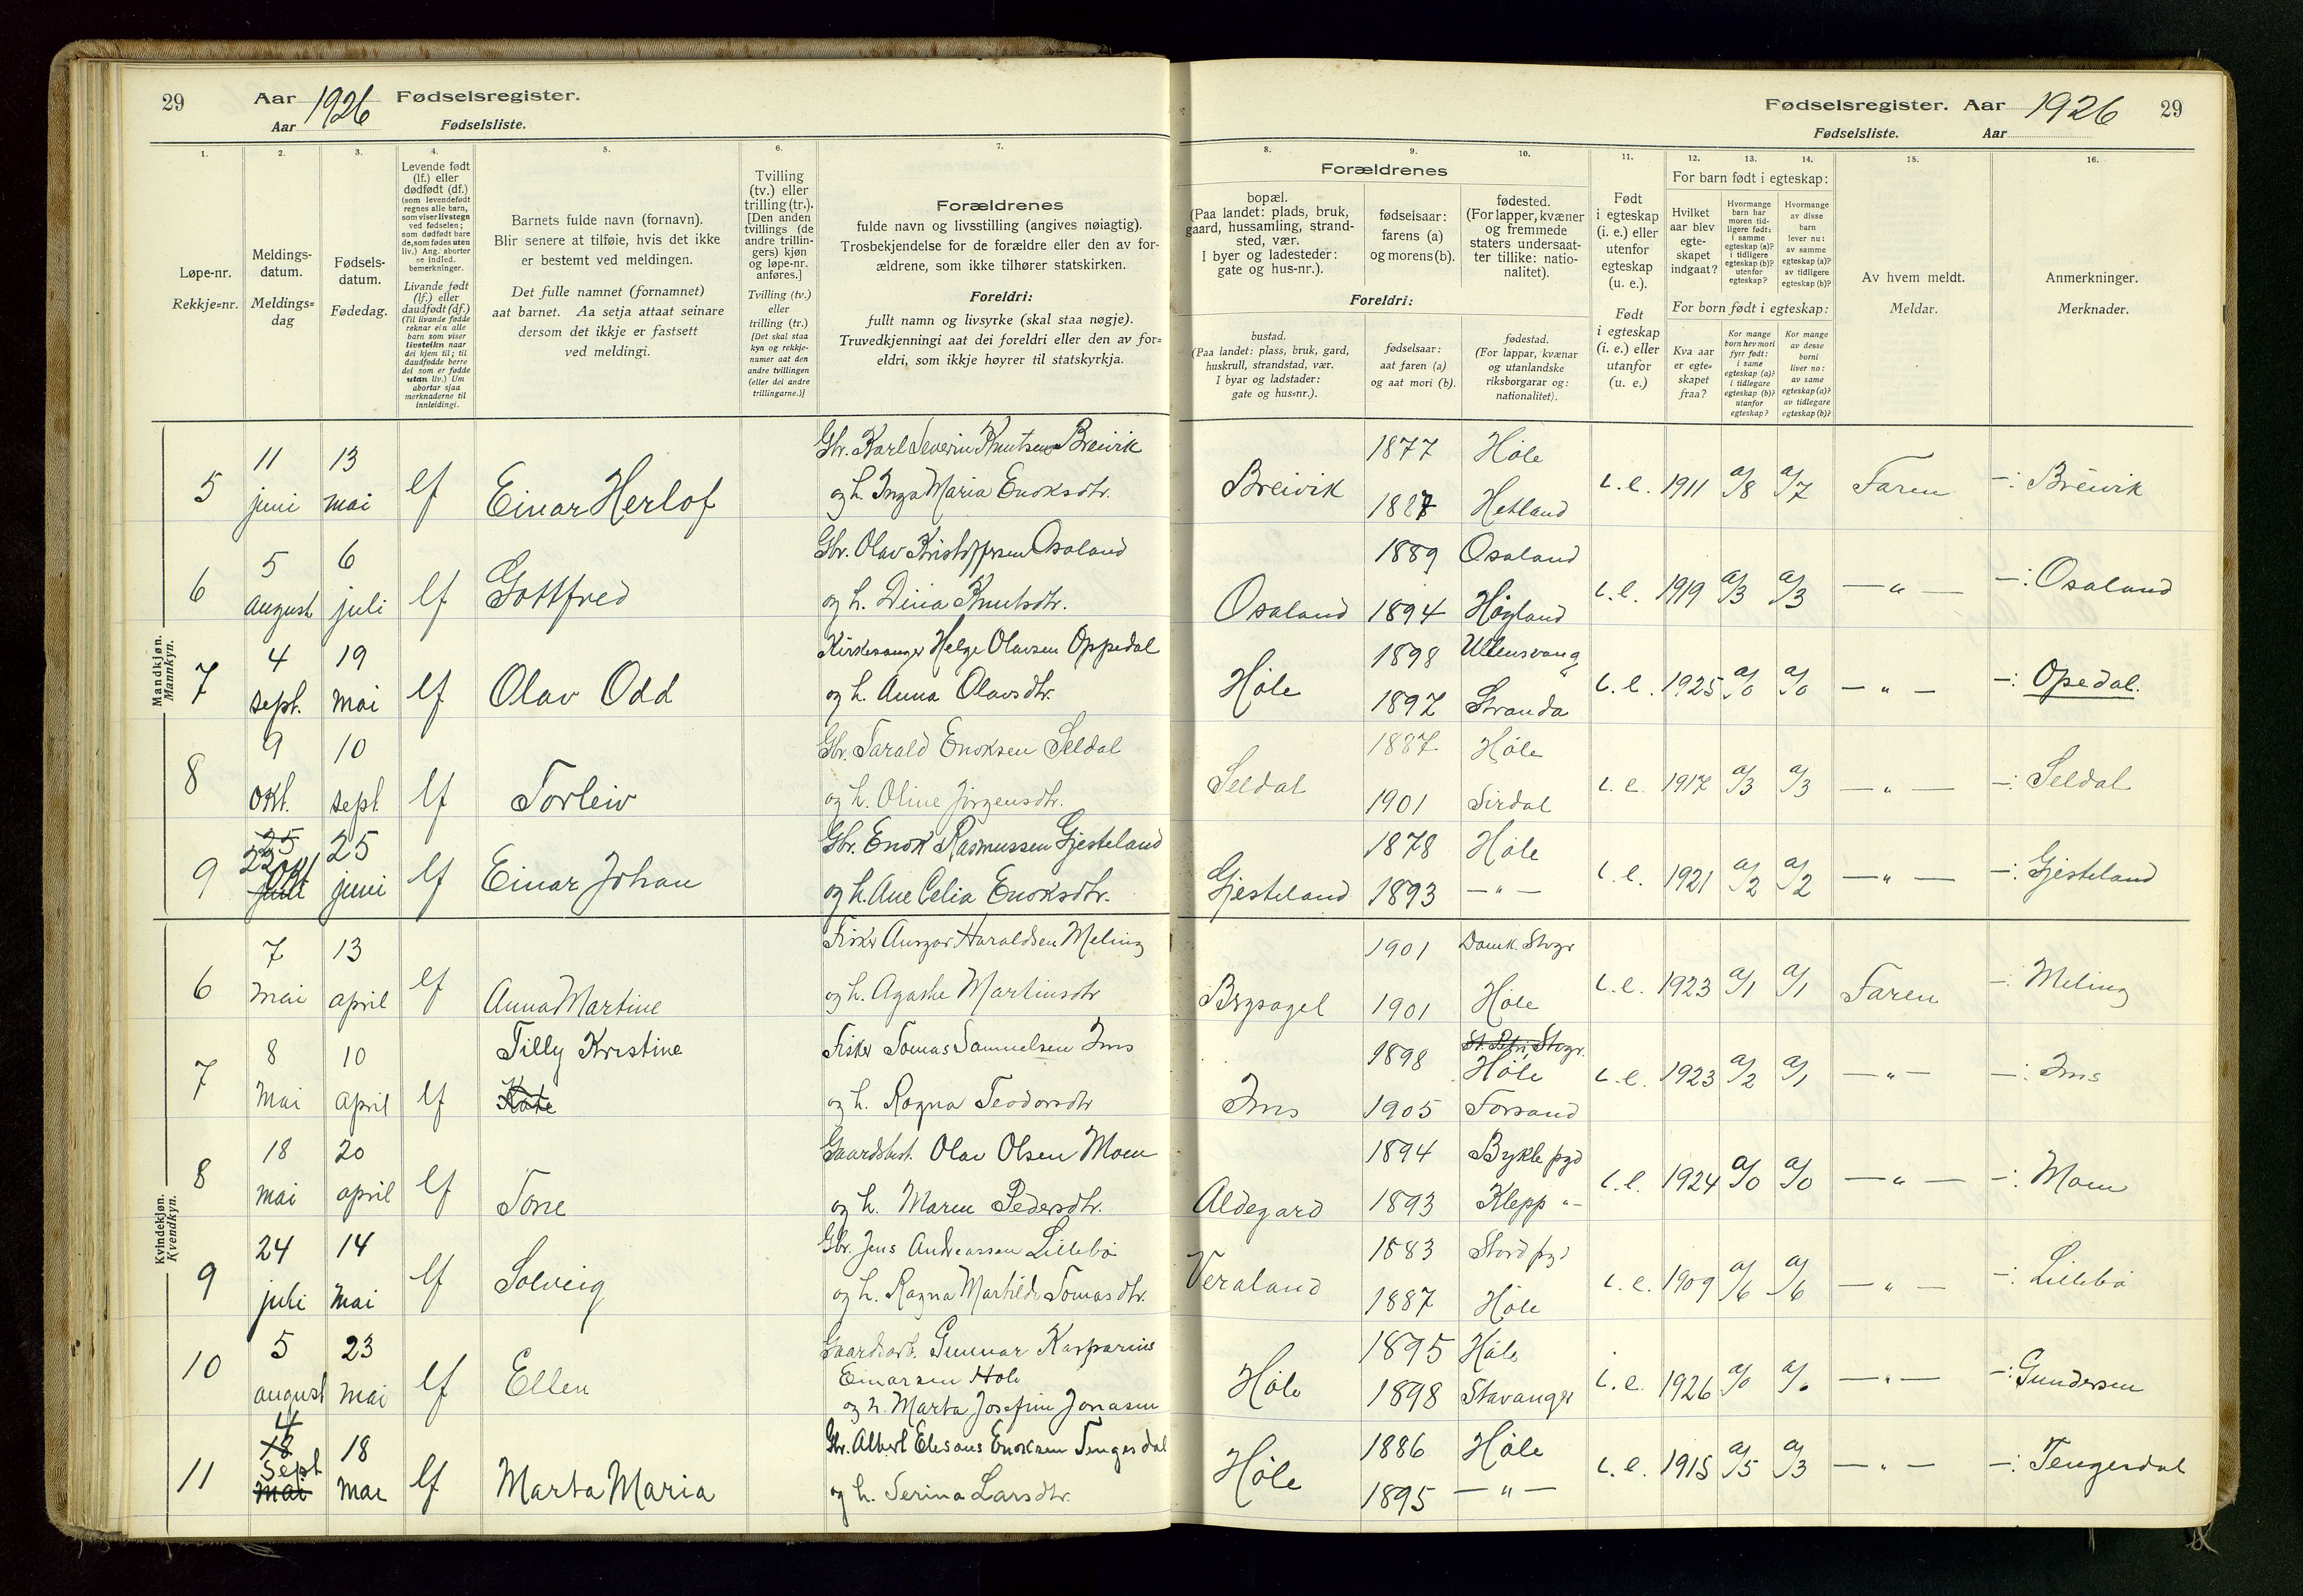 29 Aar 1926 Fødselsregister.
Aar Fødselsliste.
1. 2. 3. 4. 5. 6. 7.
Løpe-nr.
Rekkje=nr.
Meldings-
datum.
Meldings=
dag
Fødsels-
datum.
Fødedag.
Levende født
(lf.) eller
dødfødt (df.)
(som levendefødt
regnes alle barn,
som viser livstegn
ved fødselen;
som dødfødt bare
de, som fødes uten
liv.) Ang. aborter
se indled.
bemerkninger.
Livande født
(lf.) eller
daudfødt (df.)
(Til livande fødde
reknar ein alle
barn som viser
livsteikn naar
dei kjem til; til
daudfødde berre
dei som er fødde
utan liv.) Um
abortar sjaa
merknaderne til
innleidingi.
Barnets fulde navn (fornavn).
Blir senere at tilføie, hvis det ikke
er bestemt ved meldingen.
Det fulle namnet (fornamnet)
aat barnet. Aa setja attaat seinare
dersom det ikkje er fastsett
ved meldingi.
Tvilling
(tv.) eller
trilling (tr.).
[Den anden
tvillings (de
andre trillin-
gers) kjøn
og løpe-nr.
anføres.]
Tvilling (tv.)
eller
trilling (tr.)
[Det skal staa
kyn og rekkje-
numer aat den
andre tvillingen
(eller dei andre
trillingarne.)]
Forældrenes
fulde navn og livsstilling (angives nøiagtig).
Trosbekjendelse for de forældre eller den av for-
ældrene, som ikke tilhører statskirken.
Foreldri:
fullt namn og livsyrke (skal staa nøgje).
Truvedkjenningi aat dei foreldri eller den av for=
eldri, som ikkje høyrer til statskyrkja.
Mandkjøn.
Mannkyn.
5 11 juni 13 mai lf Einar Herlof
Gbr. Karl Severin Knutsen Breivik
og h. Inga Maria Enoksdtr.
6 5 august 6 juli lf Gottfred
Gbr. Olav Kristoffersen Osaland
og h. Dina Knutsdtr.
7 4 sept. 19 mai lf Olav Odd
Kirkesanger Helge Olavsen Oppedal
og h. Anna Olavsdtr.
8 9 okt. 10 sept lf Torleiv
Gbr. Tarald Enoksen Seldal
og h. Oline Jörgensdtr.
9 25 22 okt juni 25 juni lf Einar Johan
Gbr. Enok Rasmussen Gjesteland
og h. Ane Celia Enoksdtr.
Kvindekjøn.
Kvendkyn.
6 7 mai 13 april lf Anna Martine
Fisker Ansgar Haraldsen Meling
og h. Agathe Martinsdtr
7 8 mai 10 april lf Tilly Kristine
Kate
Fisker Tomas Samuelsen Ims
og h. Ragna Teodorsdtr
8 18 mai 20 april lf Tone
Gaardsbest. Olav Olsen Moen
og h. Maren Pedersdtr.
9 24 juli 14 mai lf Solveig
Gbr. Jens Andreassen Lillebö
og h. Ragna Martilde Tomasdtr.
10 5 august 23 mai lf Ellen
Gaardsarb. Gunnar Kasparius
Einarsen Höle
og h. Marta Josefine Jonasen
11 4 18 sept mai 18 mai lf Marta Maria
Gbr. Albert Elesæus Enoksen Tengesdal
og h. Serina Larsdtr.
Fødselsregister. Aar 1926 29
Fødselsliste. Aar
8. 9. 10. 11. 12. 13. 14. 15. 16.
Forældrenes
bopæl.
(Paa landet: plads, bruk,
gaard, hussamling, strand-
sted, vær.
I byer og ladesteder:
gate og hus-nr.).
fødselsaar:
farens (a)
og morens (b).
fødested.
(For lapper, kvæner
og fremmede
staters undersaat-
ter tillike: natio-
nalitet).
Foreldri:
bustad.
(Paa landet: plass, bruk, gard,
huskrull, strandstad, vær.
I byar og ladstader:
gate og hus=nr.).
fødselsaar:
aat faren (a)
og aat mori (b).
fødestad.
(For lappar, kvænar
og utanlandske
riksborgarar og:
nationalitet).
Født
i egteskap
(i. e.) eller
utenfor
egteskap
(u. e.).
Født
i egteskap
(i. e.) eller
utanfor
(u. e.)
For barn født i egteskap:
Hvilket
aar blev
egte-
skapet
indgaat?
Hvormange
barn har
moren tid-
ligere født:
i samme
egteskap (a)?
i tidligere
egteskap (b)?
utenfor
egteskap?
Hvormange
av disse
barn
lever nu:
av samme
egteskap (a)?
av tidligere
egteskap (b)?
For born født i egteskap:
Kva aar
er egte=
skapet
fraa?
Kor mange
born hev mori
fyrr født:
i same
egteskap (a)?
i tidlegare
egteskap (b)?
utanfor
egteskap?
Kor mange
av desse
borni
liver no:
av same
egteskap (a)?
av tidlegare
egteskap (b)?
Av hvem meldt.
Meldar.
Anmerkninger.
Merknader.
Breivik 1877 Höle
1887 Hetland
i.e. 1911 a/8 a/7 Faren —: Breivik
Osaland 1889 Osaland
1894 Högland
i.e. 1919 a/3 a/3 —"— —: Osaland
Höle 1898 Ullensvang
1897 Stranda
i.e. 1925 a/0 a/0 —"— —: Opedal.
Seldal 1887 Höle
1901 Sirdal
i.e. 1917 a/3 a/3 —"— —: Seldal
Gjesteland 1878 Höle
1893 —"—
i.e. 1921 a/2 a/2 —"— —: Gjesteland
Bryságel 1901 Domk. Stvgr
1901 Höle
i.e. 1923 a/1 a/1 Faren —: Meling
Ims 1898 St. Petri, Stvgr.
Höle
1905 Forsand
i.e. 1923 a/2 a/1 —"— —: Ims
Aldegard 1894 Bykle pgd
1893 Klepp "—
i.e. 1924 a/0 a/0 —"— —: Moen
Veraland 1883 Stord pgd
1887 Höle
i.e. 1909 a/6 a/6 —"— —: Lillebö
Höle 1895 Höle
1898 Stavanger
i.e. 1926 a/0 a/0 —"— —: Gundersen
Höle 1886 Höle
1895 —"—
i.e. 1915 a/5 a/3 —"— —: Tengesdal